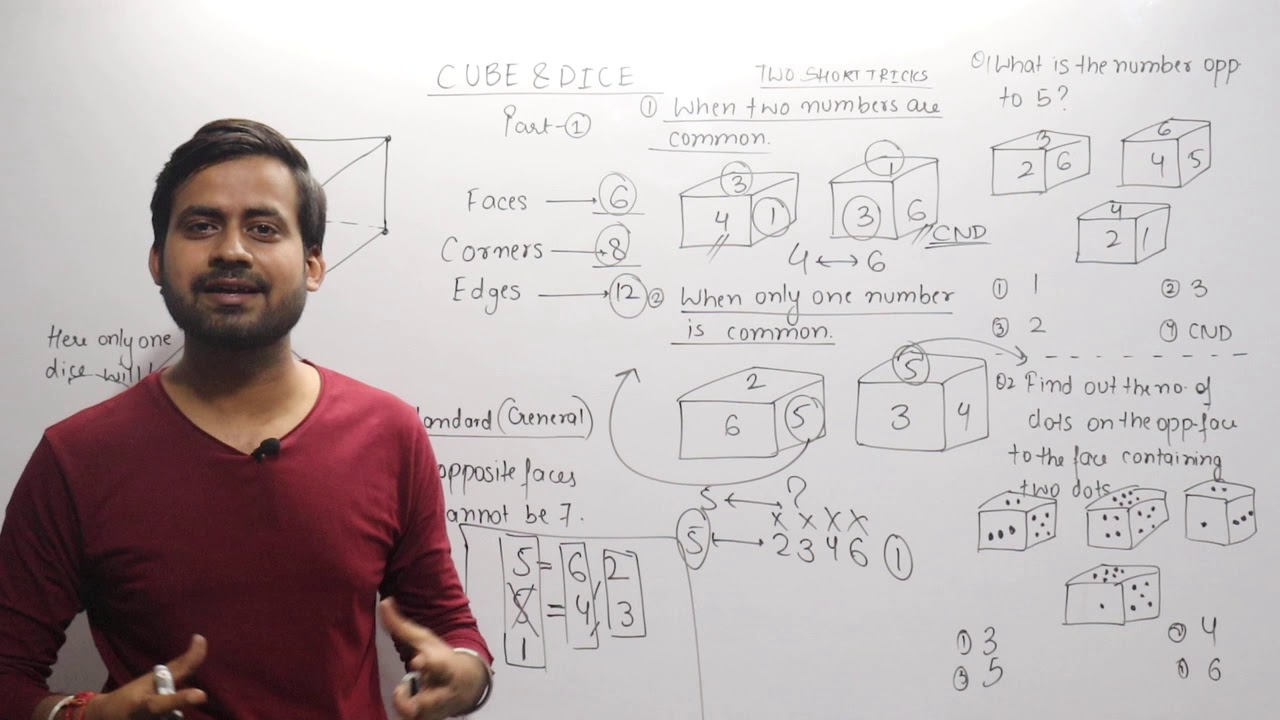 CUBE & DICE
Part-①
Faces → 6
Corners → 8
Edges → 12
Here only one
dice will
andard (General)
opposite faces
annot be 7.
5 = 6 2
5 = 4 3
1
TWO SHORT TRICKS
① When two numbers are
common.
3
4 1
1
3 6
CND
4 ↔ 6
② When only one number
is common.
2
6 5
5
3 4
5 ↔ ?
x x x x
5 ↔ 2 3 4 6 1
Q1 What is the number opp.
to 5?
3
2 6
6
4 5
4
2 1
① 1 ② 3
③ 2 ④ CND
Q2 Find out the no. of
dots on the opp. face
to the face containing
two dots
① 3 ② 4
③ 5 ① 6